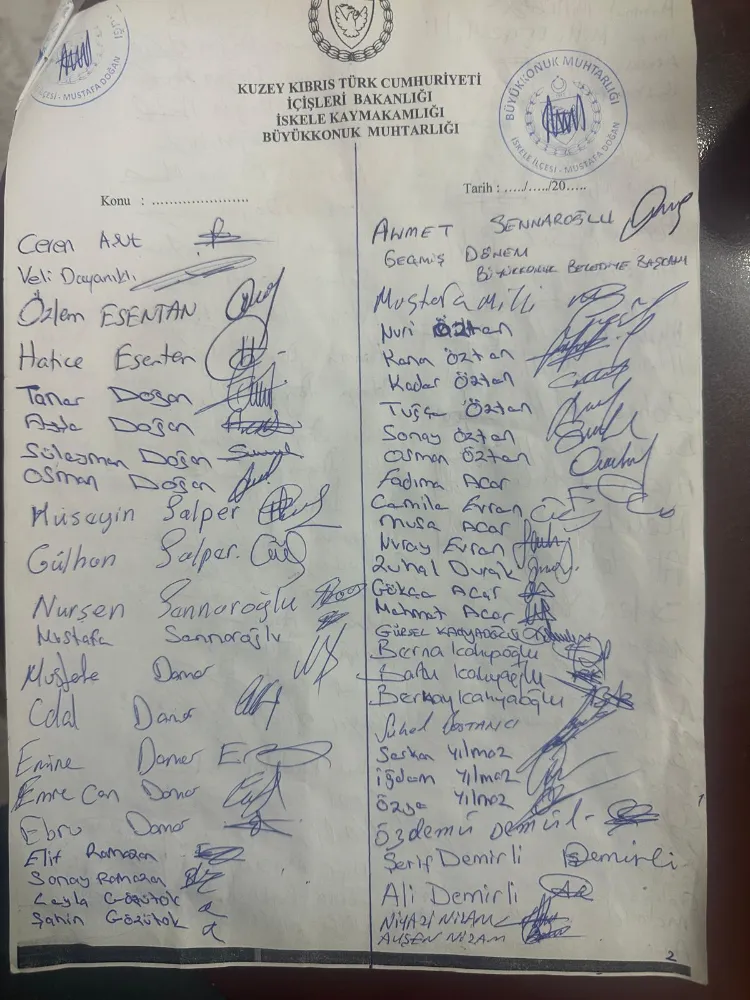 KUZEY KIBRIS TÜRK CUMHURİYETİ
İÇİŞLERİ BAKANLIĞI
İSKELE KAYMAKAMLIĞI
BÜYÜKKONUK MUHTARLIĞI
BÜYÜKKONUK MUHTARLIĞI
İSKELE İLÇESİ - MUSTAFA DOĞAN
MUSTAFA DOĞAN
Konu : ......................
Tarih : ...../...../20.....
Ceren Asut
Veli Dayanıklı
Özlem ESENTAN
Hatice Esenten
Taner Doğan
Ayla Doğan
Süleyman Doğan
OSMAN Doğan
Hüseyin Salper
Gülhan Salper.
Nurşen Sannaroğlu
Mustafa Sannaroğlu
Mustafa Damar
Celal Damar
Emine Damar
Emre Can Damar
Ebru Damar
Elif Ramazan
Sonay Ramazan
Leyla Gözütok
Şahin Gözütok
AHMET SENNAROĞLU
GEÇMİŞ DÖNEM
BÜYÜKKONUK BELEDİYE BAŞKANI
Mustafa Milli
Nuri Öztan
Kana Öztan
Kader Öztan
Tuğçe Öztan
Sonay Öztan
Osman Öztan
Fadıma Acar
Camila Evran
Musa Acar
Nuray Evran
Zuhal Durak
Gökçe Acar
Mehmet Acar
GÜRSEL
Berna Kahyaoğlu
Batu Kahyaoğlu
Berkay Kahyaoğlu
BOSTANCI
Serkan Yılmaz
İğdem Yılmaz
Özge Yılmaz
Şerif Demirli Demirli
Ali Demirli
NİYAZİ NİZAM
AYŞEN NİZAM
2